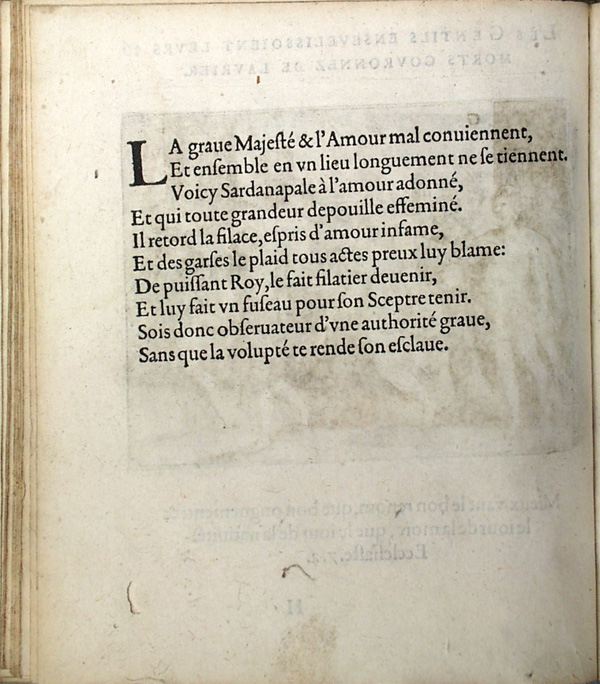 LA graue Majeſté & l'Amour mal conuiennent,
Et enſemble en vn lieu longuement ne ſe tiennent.
Voicy Sardanapale à l'amour adonné,
Et qui toute grandeur depouille effeminé.
Il retord la filace, eſpris d'amour infame,
Et des garſes le plaid tous actes preux luy blame:
De puiſſant Roy, le fait filatier deuenir,
Et luy fait vn fuſeau pour ſon Sceptre tenir.
Sois donc obſeruateur d'vne authorité graue,
Sans que la volupté te rende ſon eſclaue.